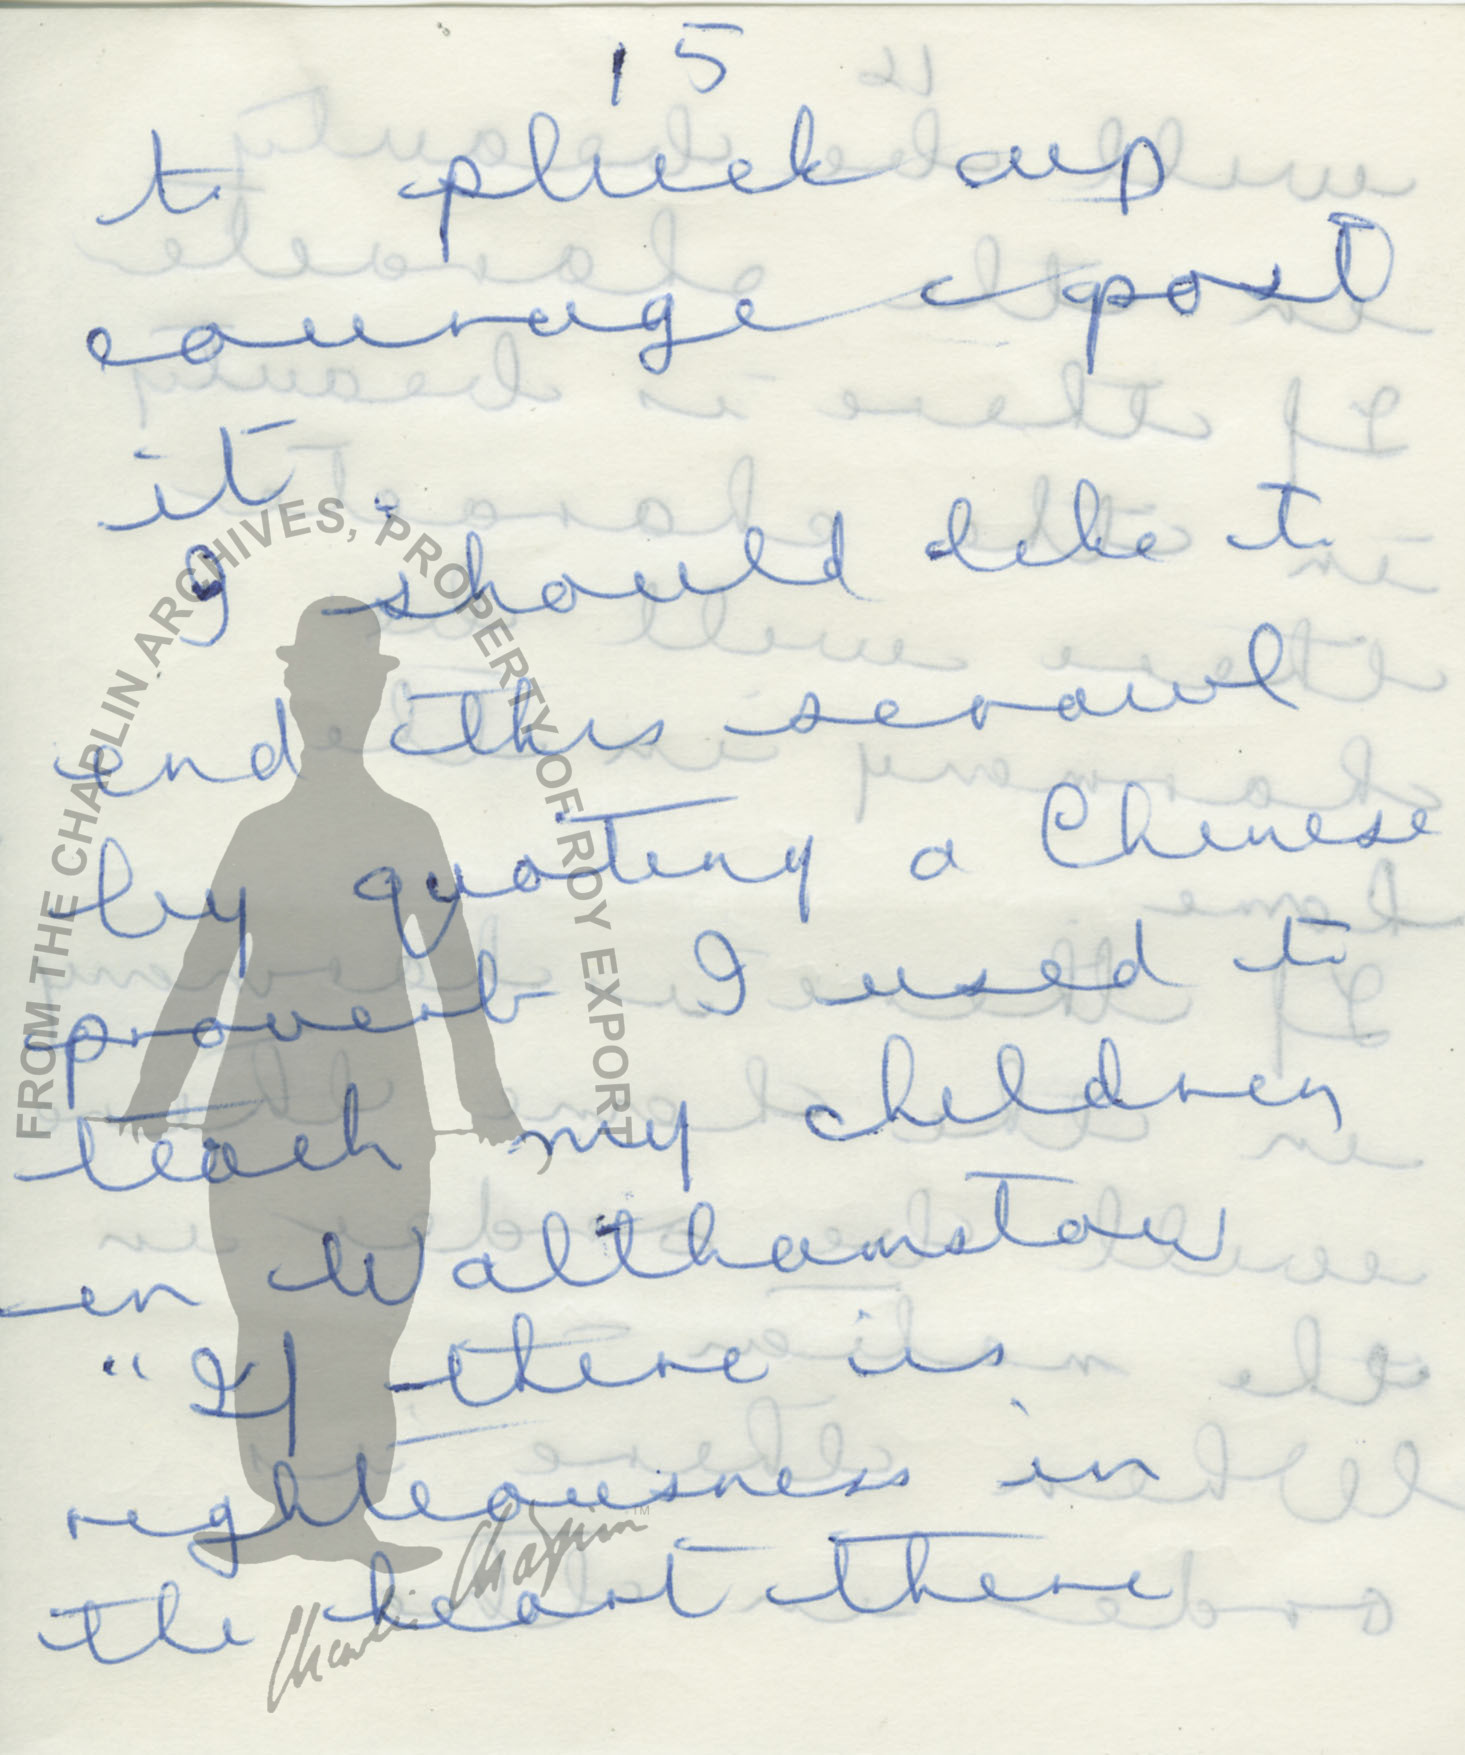 15
to pluck up
courage & post
it.
I should like to
end this scrawl
by quoting a Chinese
proverb I used to
teach my children
in Walthamstow
"If there is
righteousness in
the heart there
FROM THE CHAPLIN ARCHIVES, PROPERTY OF ROY EXPORT
Charlie Chaplin™